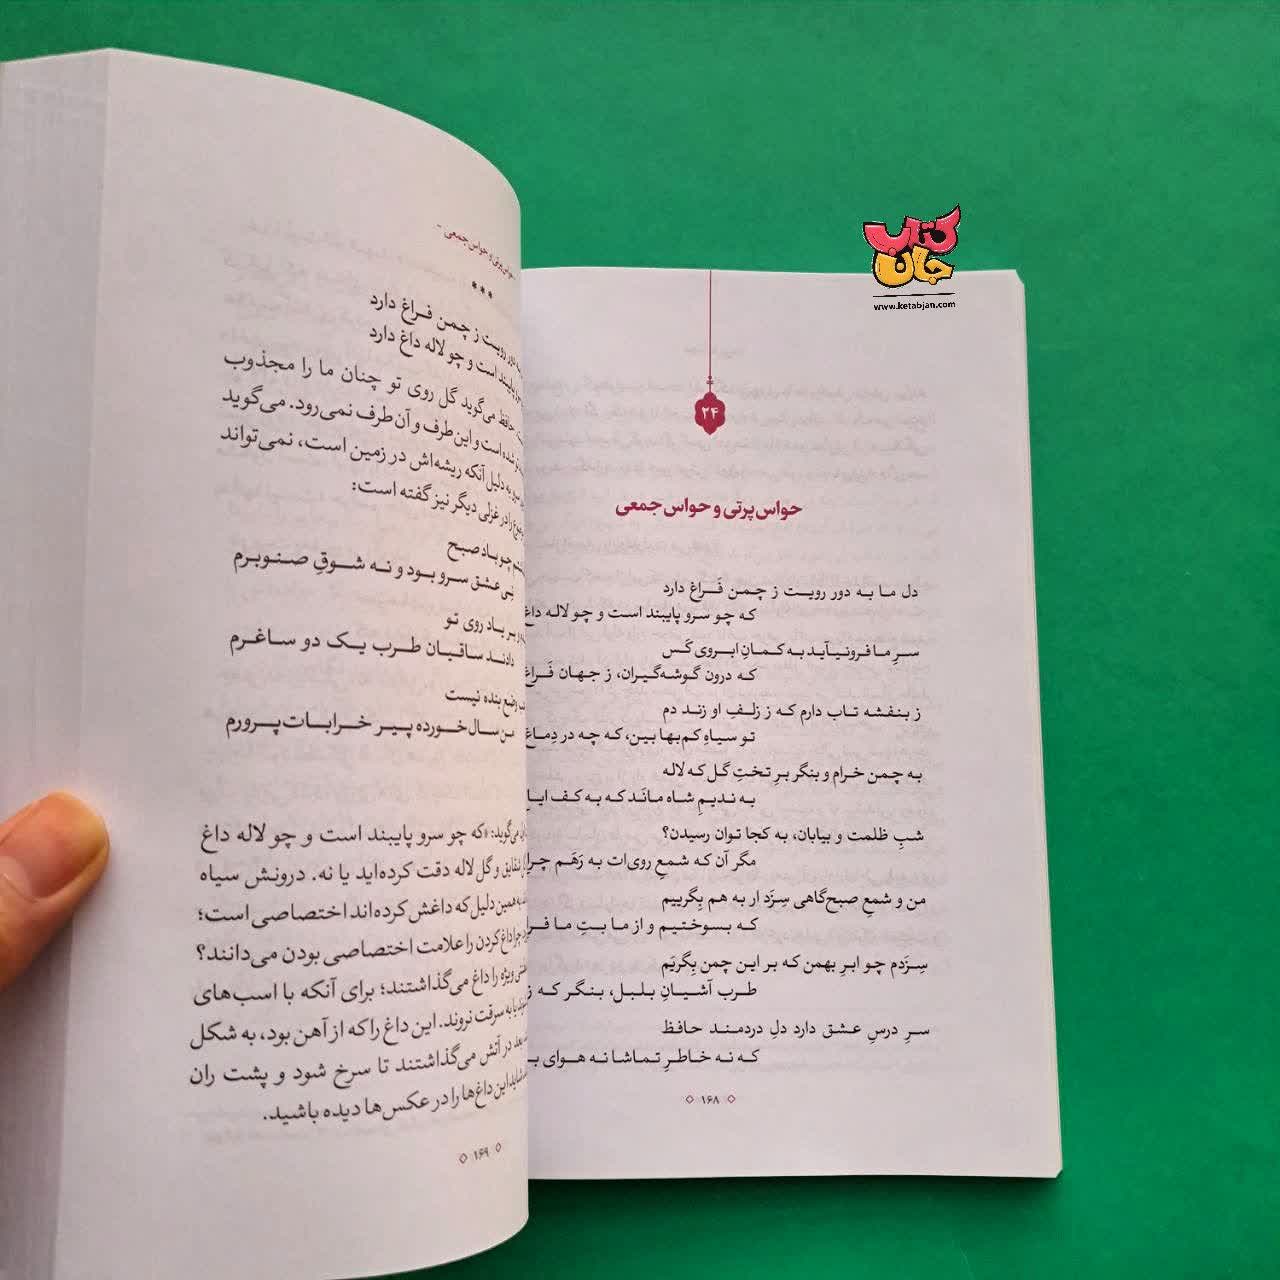 کتاب
جان
www.ketabjan.com
۲۴
حواس‌پرتی و حواس‌جمعی
دل ما به دور رویت ز چمن فَراغ دارد
که چو سرو پایبند است و چو لاله داغ
سرِ ما فرونیاید به کمانِ ابروی کَس
که درون گوشه‌گیران، ز جهان فَراغ
ز بنفشه تاب دارم که ز زلفِ او زند دم
تو سیاهِ کم‌بها بین، که چه در دِماغ
به چمن خرام و بنگر برِ تختِ گل که لاله
به ندیمِ شاه مانَد که به کف ایاغ
شبِ ظلمت و بیابان، به کجا توان رسیدن؟
مگر آن که شمعِ روی‌ات به رَهَم
من و شمعِ صبح‌گاهی سِزَد ار به هم بِگرییم
که بسوختیم و از ما بتِ ما
سِزَدم چو ابرِ بهمن که بر این چمن بِگریَم
طرب آشیانِ بلبل، بنگر که
سرِ درسِ عشق دارد دلِ دردمند حافظ
که نه خاطرِ تماشا نه هوای
۱۶۸
حواس‌پرتی و حواس‌جمعی -
***
دور رویت ز چمن فراغ دارد
پایبند است و چو لاله داغ دارد
حافظ می‌گوید گل روی تو چنان ما را مجذوب
شده است و این طرف و آن طرف نمی‌رود. می‌گوید
سرو به دلیل آنکه ریشه‌اش در زمین است، نمی‌تواند
را در غزلی دیگر نیز گفته است:
چو باد صبح
نِی عشق سرو بود و نه شوقِ صنوبرم
بر یاد روی تو
دادند ساقیان طرب یک دو ساغرم
وضع بنده نیست
من سال‌خورده پیر خرابات‌پرورم
می‌گوید: «که چو سرو پایبند است و چو لاله داغ
شقایق و گل لاله دقت کرده‌اید یا نه. درونش سیاه
به همین دلیل که داغش کرده‌اند اختصاصی است؛
چرا داغ کردن را علامت اختصاصی بودن می‌دانند؟
ویژه را داغ می‌گذاشتند؛ برای آنکه با اسب‌های
یا به سرقت نروند. این داغ را که از آهن بود، به شکل
بعد در آتش می‌گذاشتند تا سرخ شود و پشت ران
شاید این داغ‌ها را در عکس‌ها دیده باشید.
۱۶۹